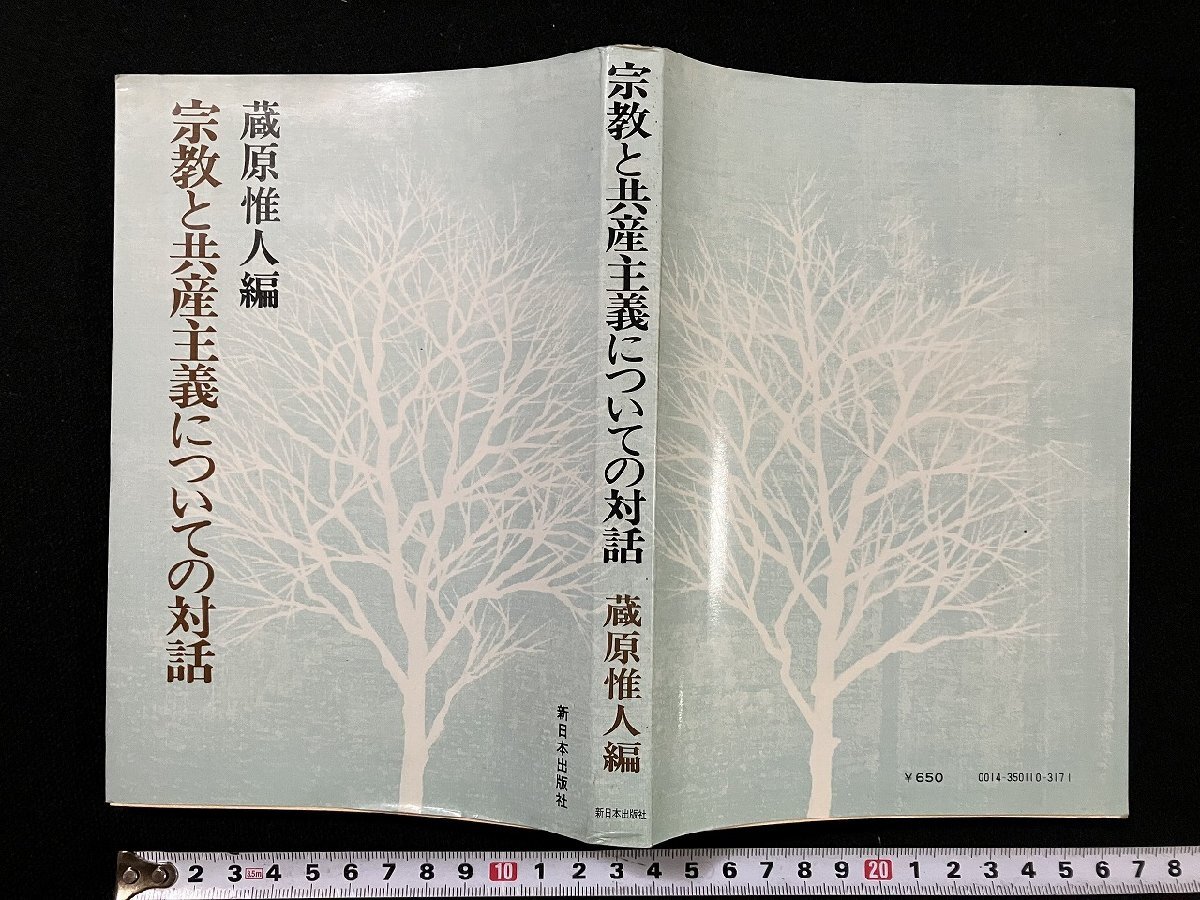 蔵原惟人編
宗教と共産主義についての対話
新日本出版社
宗教と共産主義についての対話 蔵原惟人編
新日本出版社
¥650 C014-350110-3171
2 3 3.5m 4 5 6 7 8 9 10 1 2 3 4 5 6 7 8 9 20 1 2 3 4 5 6 7 8